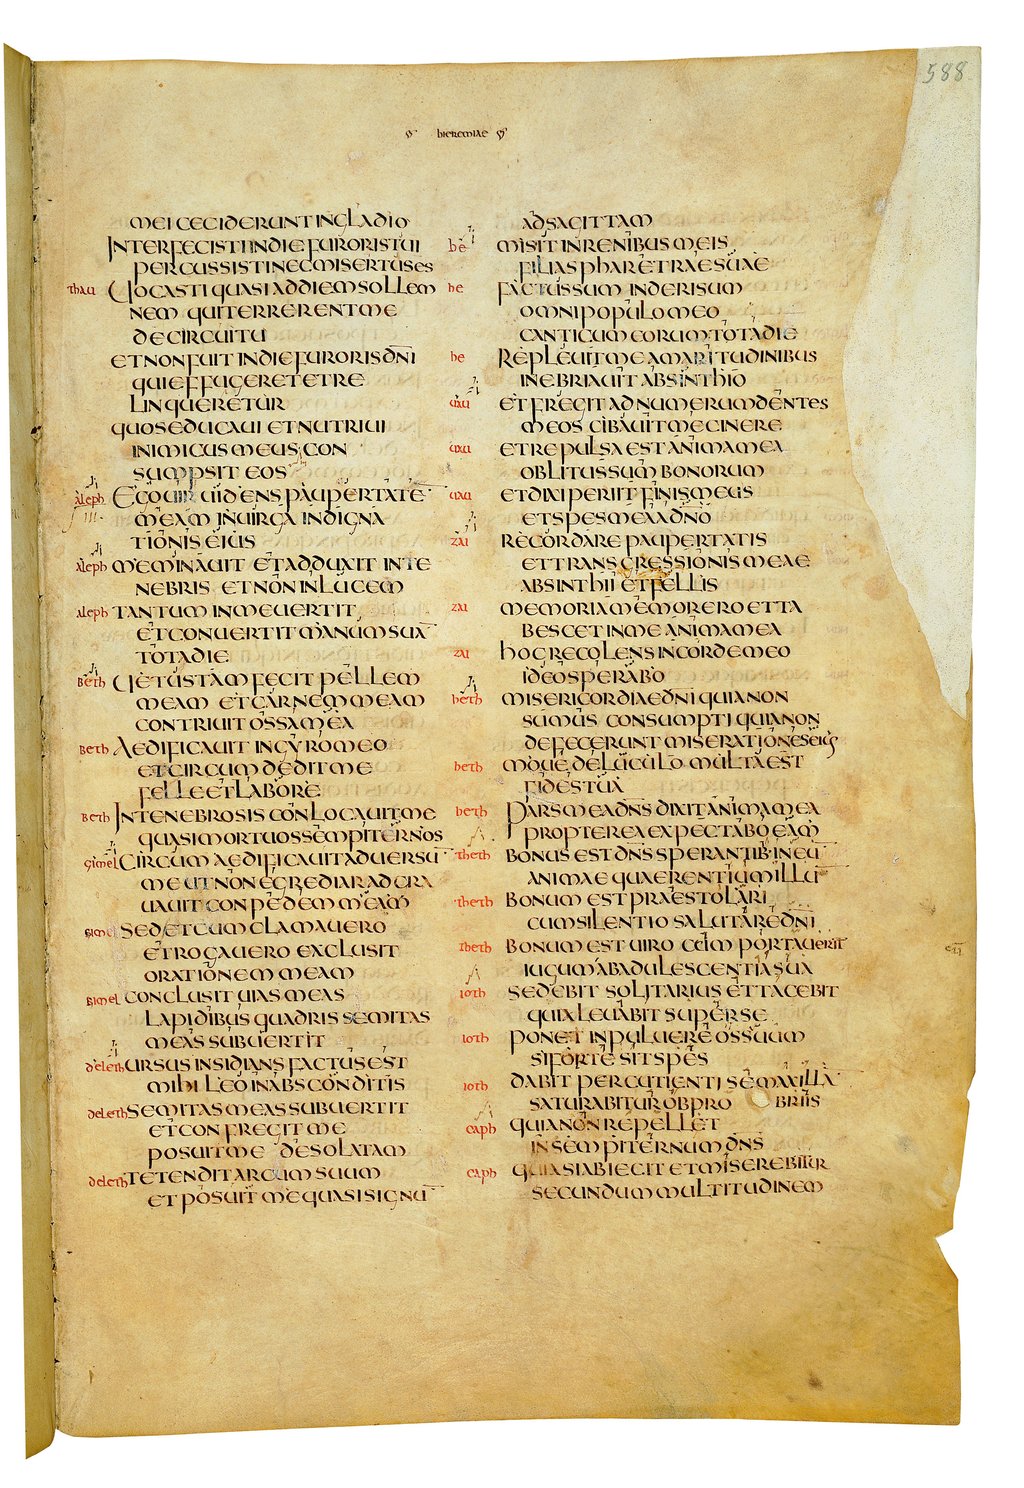 588
hieremiae
mei ceciderunt in gladio
Interfecisti in die furoris tui
percussisti nec misertus es
thau Uocasti quasi ad diem sollem
nem qui terrerent me
de circuitu
et non fuit in die furoris dn̄i
qui effugeret et re
linqueretur
quos educaui et nutriui
inimicus meus con
sumpsit eos
aleph Ego uir uidens paupertate
meam in uirga indigna
tionis eius
aleph me minauit et adduxit in te
nebris et non in lucem
aleph tantum in me uertit
et conuertit manum suā
tota die
Beth Uetustam fecit pellem
meam et carnem meam
contriuit ossa mea
Beth Aedificauit in gyro meo
et circumdedit me
felle et labore
Beth In tenebrosis conlocauit me
quasi mortuos sempiternos
gimel Circumaedificauit aduersū
me ut non egrediar adgra
uauit conpedem meam
gimel Sed et cum clamauero
et rogauero exclusit
orationem meam
gimel conclusit uias meas
lapidibus quadris semitas
meas subuertit
deleth ursus insidians factus est
mihi leo in absconditis
deleth semitas meas subuertit
et confregit me
posuit me desolatam
deleth Tetendit arcum suum
et posuit me quasi signū
ad sagittam
he misit in renibus meis
filias pharetrae suae
he factus sum in derisum
omni populo meo
canticum eorum tota die
he Repleuit me amaritudinibus
inebriauit absinthio
uau et fregit ad numerum dentes
meos cibauit me cinere
uau et repulsa est anima mea
oblitus sum bonorum
uau et dixi periit finis meus
et spes mea a dn̄o
zai recordare paupertatis
et transgressionis meae
absinthii et fellis
zai memoria memor ero et ta
bescet in me anima mea
zai hoc recolens in corde meo
ideo sperabo
heth misericordiae dn̄i quia non
sumus consumpti quia non
defecerunt miserationes eius
heth noue deluculo multa est
fides tua
heth Pars mea dn̄s dixit anima mea
propterea expectabo eam
theth Bonus est dn̄s sperantib· in eū
animae quaerenti illū
theth Bonum est praestolari
cum silentio salutare dn̄i
theth Bonum est uiro cum portauerit
iugum ab adulescentia sua
ioth sedebit solitarius et tacebit
quia leuabit super se
ioth ponet in puluere os suum
si forte sit spes
ioth dabit percutienti se maxillā
saturabitur obprobriis
caph quia non repellet
in sempiternum dn̄s
caph quia si abiecit et miserebitur
secundum multitudinem